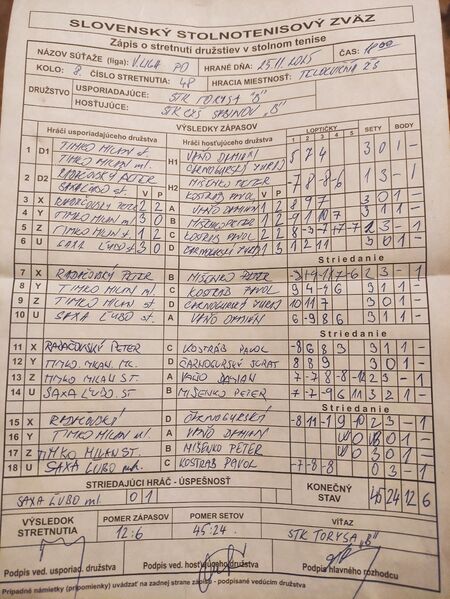 SLOVENSKÝ STOLNOTENISOVÝ ZVÄZ
Zápis o stretnutí družstiev v stolnom tenise
NÁZOV SÚŤAŽE (liga): V. LIGA PO HRANÉ DŇA: 25.11.2025 ČAS:
KOLO: 8. ČÍSLO STRETNUTIA: 48 HRACIA MIESTNOSŤ: TELOCVIČŇA ZŠ
DRUŽSTVO USPORIADAJÚCE: STK TORYSA "B"
HOSŤUJÚCE: STK CZŠ SABINOV "B"
VÝSLEDKY ZÁPASOV
Hráči usporiadajúceho družstva Hráči hosťujúceho družstva LOPTIČKY SETY BODY
1 2 3 4 5
1 D1 TIMKO MILAN st. H1 VAŇO DAMIÁN 5 7 4 3 0 1 -
TIMKO MILAN ml. ČARNOGURSKÝ JURAJ
2 D2 RADAČOVSKÝ PETER H2 MIŠENKO PETER -7 8 -8 -6 1 3 - 1
SAXA ĽUBO st. V P KOSTRÁB PAVOL V P
3 X RADAČOVSKÝ PETER 2 2 A VAŇO DAMIÁN 3 0 1 -
4 Y TIMKO MILAN ml. 3 0 B MIŠENKO PETER
5 Z TIMKO MILAN st. C KOSTRÁB PAVOL
6 U SAXA ĽUBO st. 3 0 D ČARNOGURSKÝ JURAJ 3 1
Striedanie
7 X RADAČOVSKÝ PETER B MIŠENKO PETER 2 3 - 1
8 Y TIMKO MILAN ml. C KOSTRÁB PAVOL 9 4 -4 6 3 1 1 -
9 Z TIMKO MILAN st. D ČARNOGURSKÝ JURAJ 10 11 7 3 0 1 -
10 U SAXA ĽUBO st. A VAŇO DAMIÁN 6 -9 8 6 3 1 1 -
Striedanie
11 X RADAČOVSKÝ PETER C KOSTRÁB PAVOL -8 6 8 3 3 1 1 -
12 Y TIMKO MILAN ML. D ČARNOGURSKÝ JURAJ 8 8 9 3 0 1 -
13 Z TIMKO MILAN ST. A VAŇO DAMIAN 2 3 - 1
14 U SAXA ĽUBO ST B MIŠENKO PETER 7 -7 -9 6 11 3 2 1 -
Striedanie
15 X RADAČOVSKÝ D ČARNOGURSKÝ
16 Y TIMKO MILAN ml. A VAŇO DAMIÁN
17 Z TIMKO MILAN ST. B MIŠENKO PETER
18 U SAXA ĽUBO ml. C KOSTRÁB PAVOL -7 -8 -8 0 3 - 1
STRIEDAJÚCI HRÁČ - ÚSPEŠNOSŤ KONEČNÝ STAV 45 24 12 6
SAXA ĽUBO ml. 0 1
VÝSLEDOK STRETNUTIA POMER ZÁPASOV POMER SETOV VÍŤAZ
12:6 45:24 STK TORYSA "B"
Podpis ved. usporiad. družstva Podpis ved. hosťujúceho družstva Podpis hlavného rozhodcu
Prípadné námietky (pripomienky) uvádzať na zadnej strane zápisu - podpísané vedúcim družstva